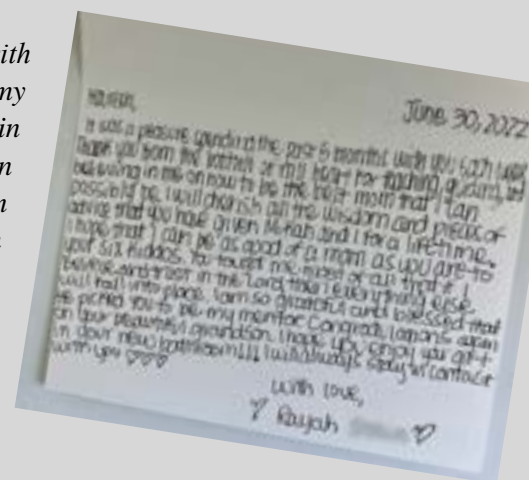 ith
my
in
n
n
June 30, 2022
it was a pleasure spending the past 6 months with you
Thank you from the bottom of my heart for teaching, guiding, and
believing in me on how to be the best mom that I can
possibly be. I will cherish all the wisdom and pieces of
advice that you have given and I for a lifetime.
I hope that I can be as good of a mom as you are to
your six kiddos. You taught me most of all that if I
believe and trust in the Lord then everything else
will fall into place. I am so grateful and blessed that
He picked you to be my mentor. again
on your beautiful grandson. I hope you enjoy your gift
in your new bathroom!!! I will always stay in contact
with you ♡♡♡
with love,
♡ Rayah ♡